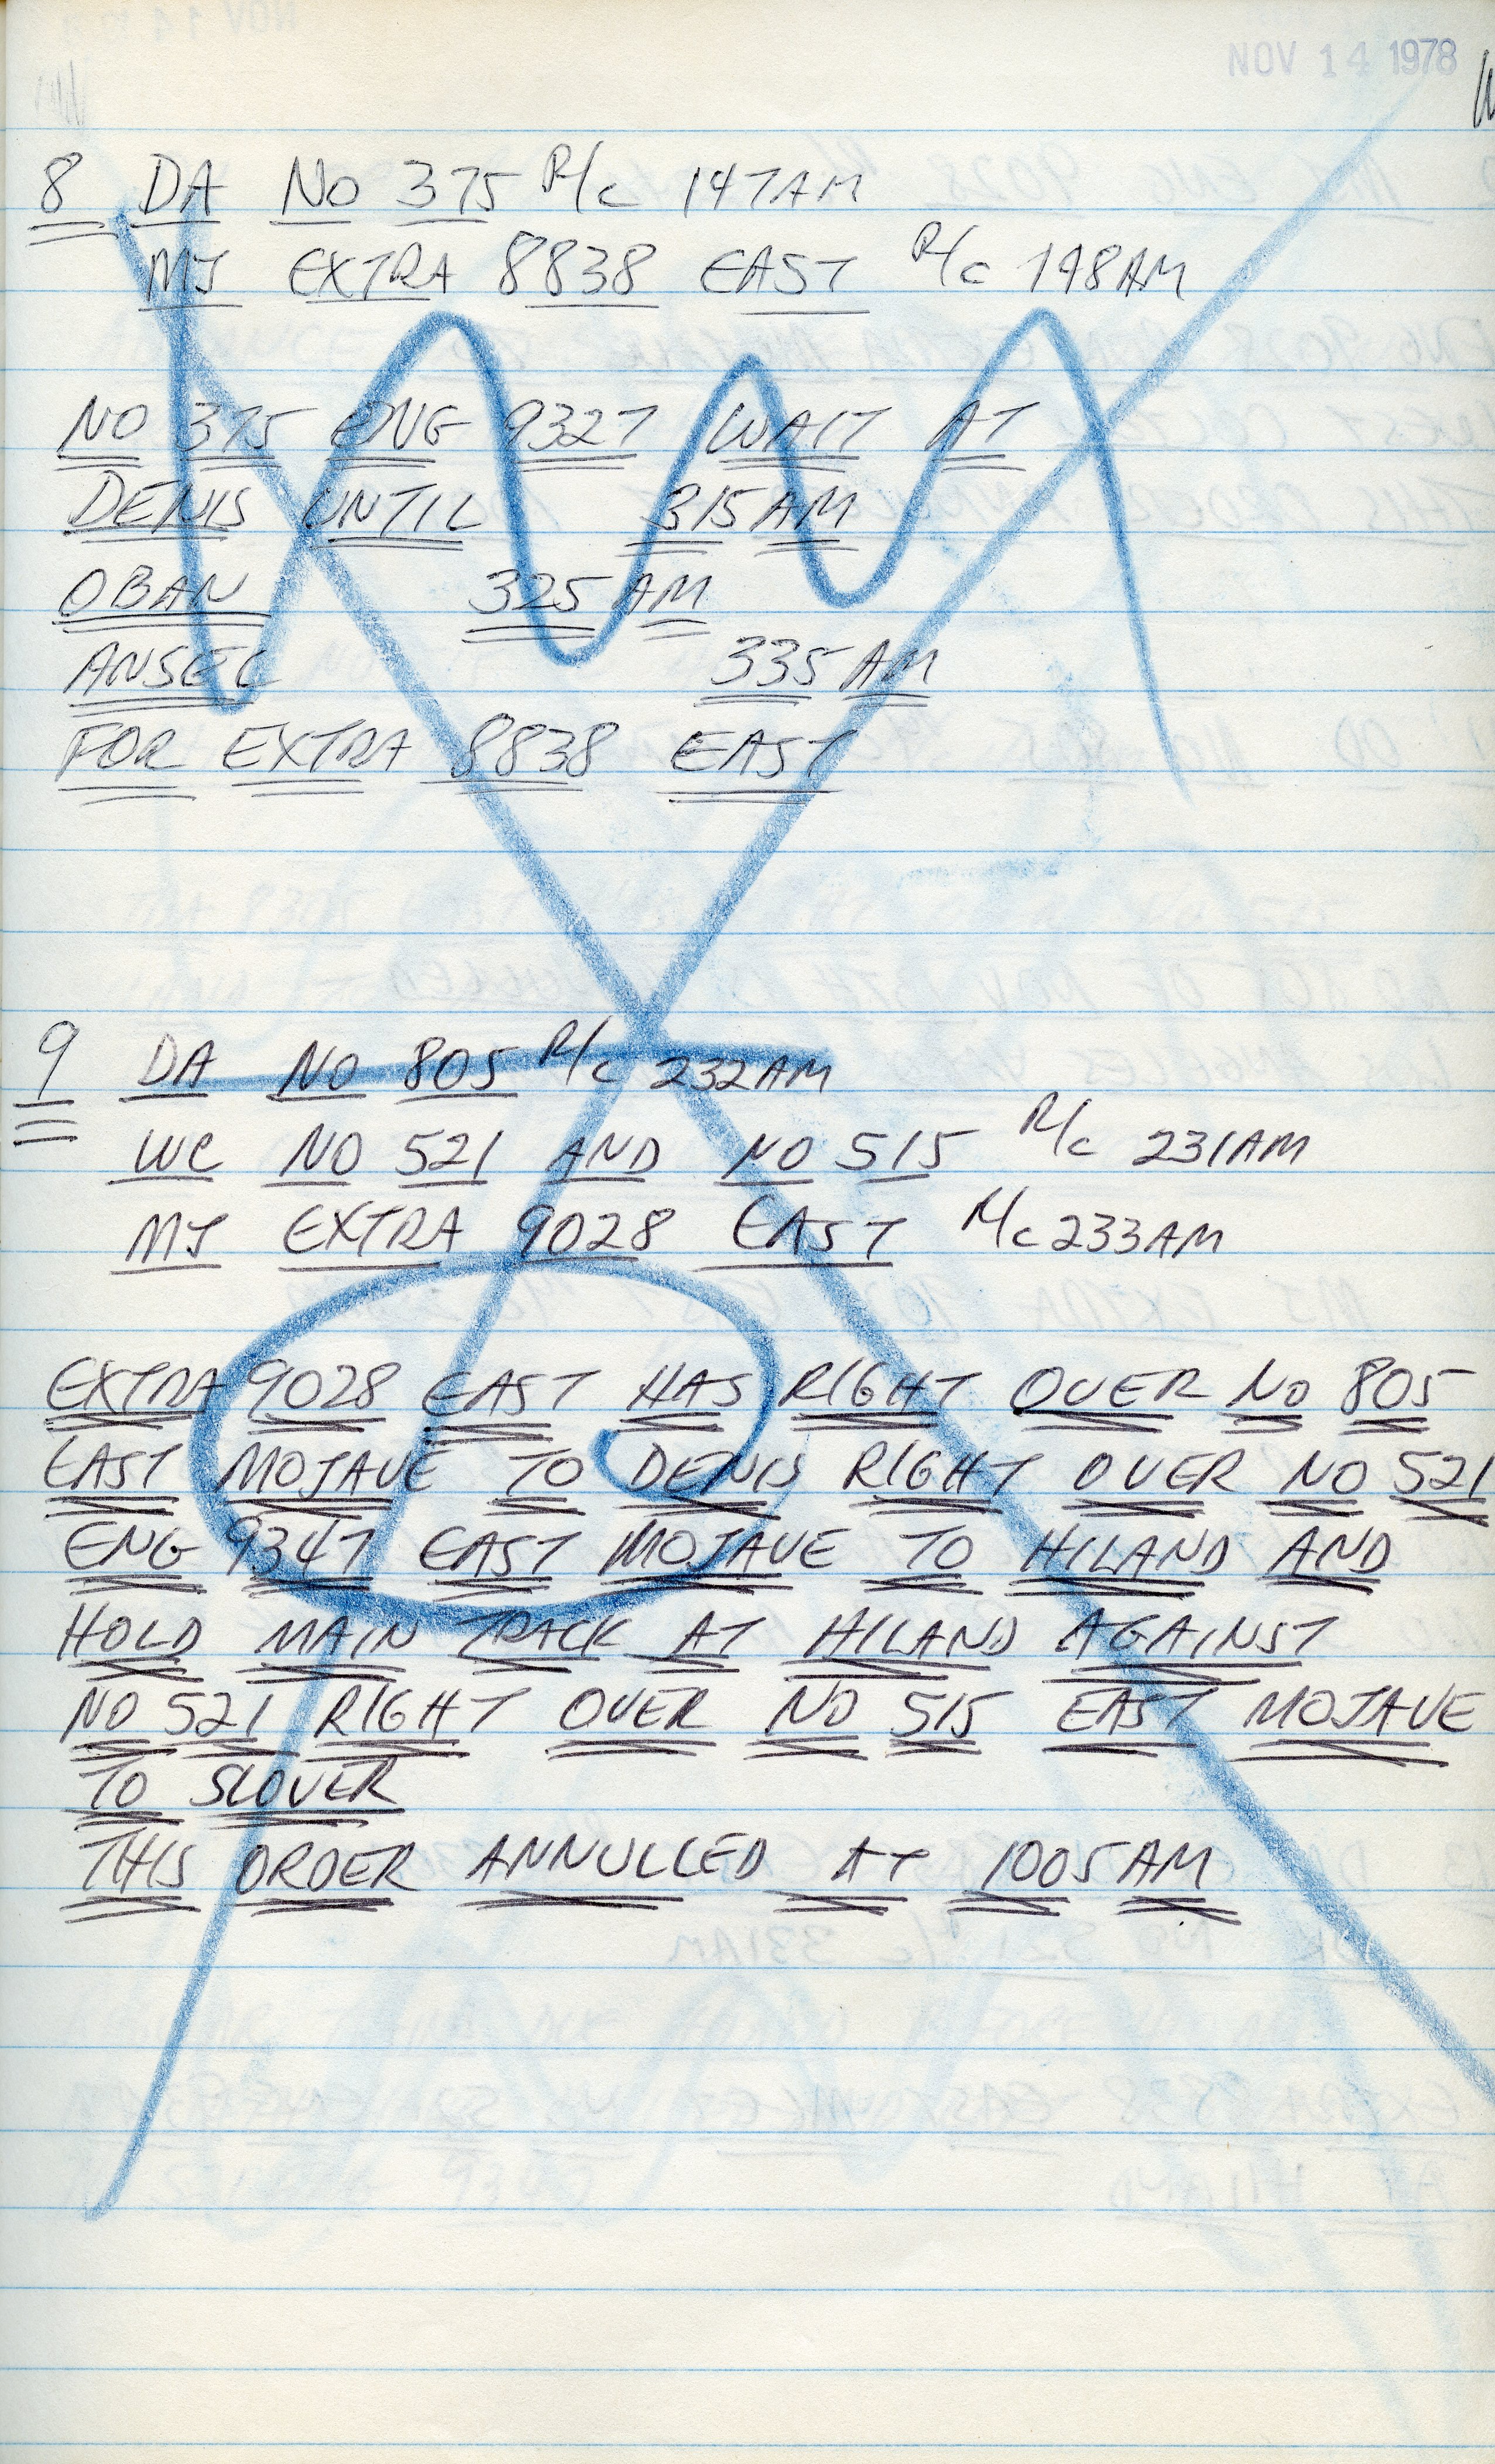 NOV 14 1978
8 DA NO 375 R/c 147AM
MJ EXTRA 8838 EAST R/c 148AM
NO 375 ENG 9327 WAIT AT
DENIS UNTIL 315AM
OBAN 325AM
ANSEL 335AM
FOR EXTRA 8838 EAST
9 DA NO 805 R/c 232AM
WC NO 521 AND NO 515 R/c 231AM
MJ EXTRA 9028 EAST R/c 233AM
EXTRA 9028 EAST HAS RIGHT OVER NO 805
EAST MOJAVE TO DENIS RIGHT OVER NO 521
ENG 9347 EAST MOJAVE TO HILAND AND
HOLD MAIN TRACK AT HILAND AGAINST
NO 521 RIGHT OVER NO 515 EAST MOJAVE
TO SLOVER
THIS ORDER ANNULLED AT 1005AM